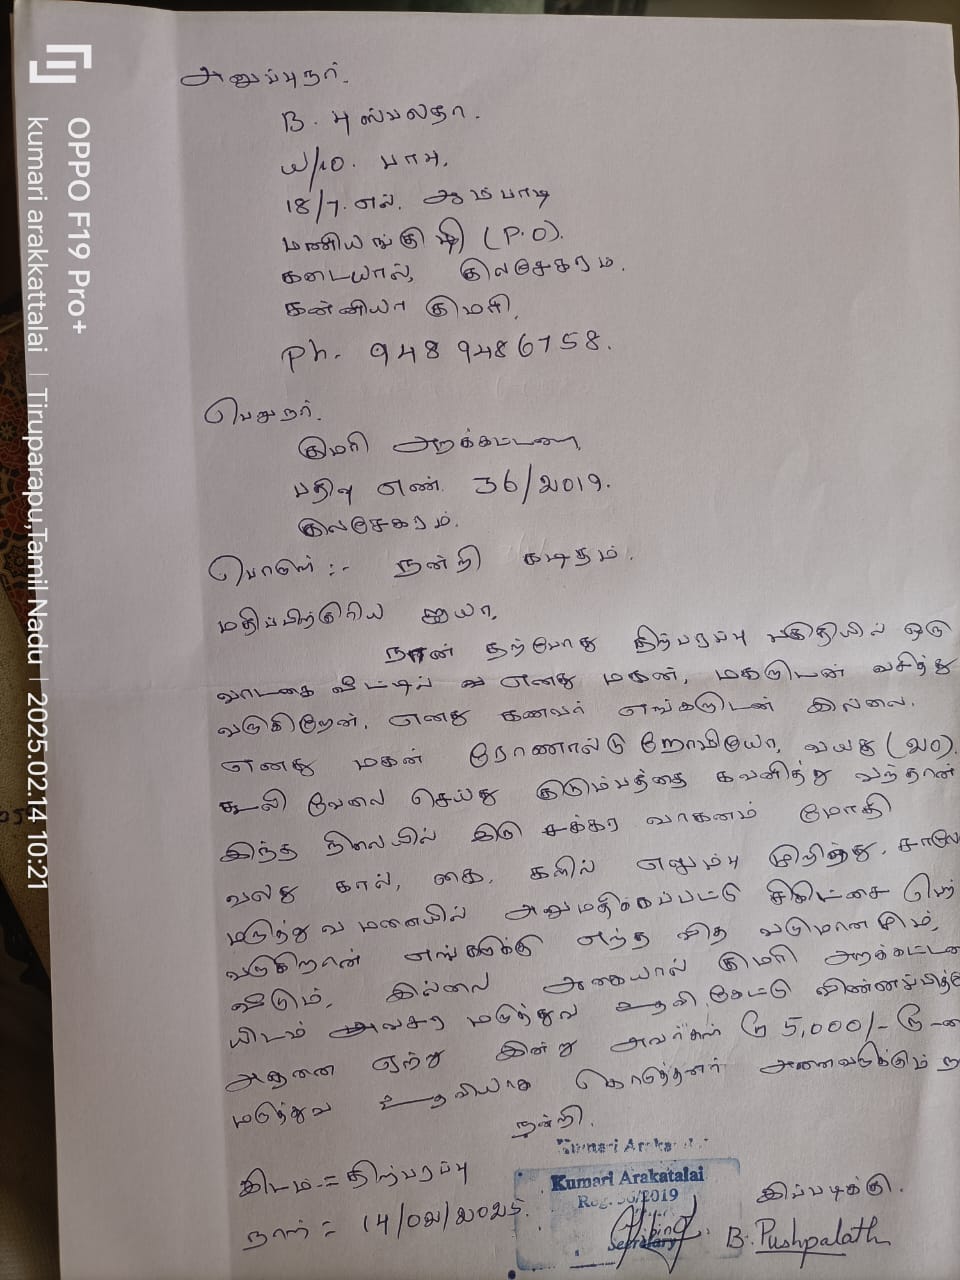 அனுப்புநர்.
B. புஸ்பலதா.
W/O. பாபு.
18/7.எல். ஆம்பாடி
மணியங்குழி (P.O).
கடையால், குலசேகரம்.
கன்னியாகுமரி.
Ph. 9489486758.
பெறுநர்.
குமரி அறக்கட்டளை,
பதிவு எண். 36/2019.
குலசேகரம்.
பொருள் :- நன்றி கடிதம்.
மதிப்பிற்குரிய ஐயா,
நான் தற்போது திற்பரப்பு பகுதியில் ஒரு
வாடகை வீட்டில் எனது மகன், மகளுடன் வசித்து
வருகிறேன். எனது கணவர் எங்களுடன் இல்லை.
எனது மகன் ரோணால்டு றோமியோ, வயது (20).
கூலி வேலை செய்து குடும்பத்தை கவனித்து வந்தான்
இந்த நிலையில் இரு சக்கர வாகனம் மோதி
வலது கால், கை, களில் எலும்பு முறிந்து.
மருத்துவ மனையில் அனுமதிக்கப்பட்டு சிகிட்சை பெற்
வருகிறான் எங்களுக்கு எந்த வித வருமானமும்,
வீடும், இல்லை ஆகையால் குமரி அறக்கட்டளை
யிடம் அவசர மருத்துவ உதவி கேட்டு விண்ணப்பித்
அதனை ஏற்று இன்று அவர்கள் ரூ 5,000/- ரூ
மருத்துவ உதவியாக கொடுத்தனர் அனைவருக்கும்
நன்றி.
இடம் = திற்பரப்பு
நாள் = 14/02/2025.
Kumari Arakatalai
Reg. 36/2019
Secretary
இப்படிக்கு.
B. Pushpalath
OPPO F19 Pro+
kumari arakkattalai | Tiruparapu,Tamil Nadu | 2025.02.14 10:21